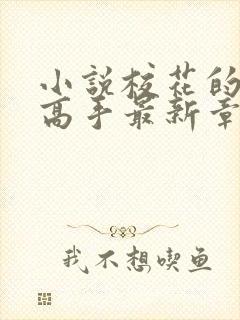 小說校花的
高手最新章
我不想喫鱼